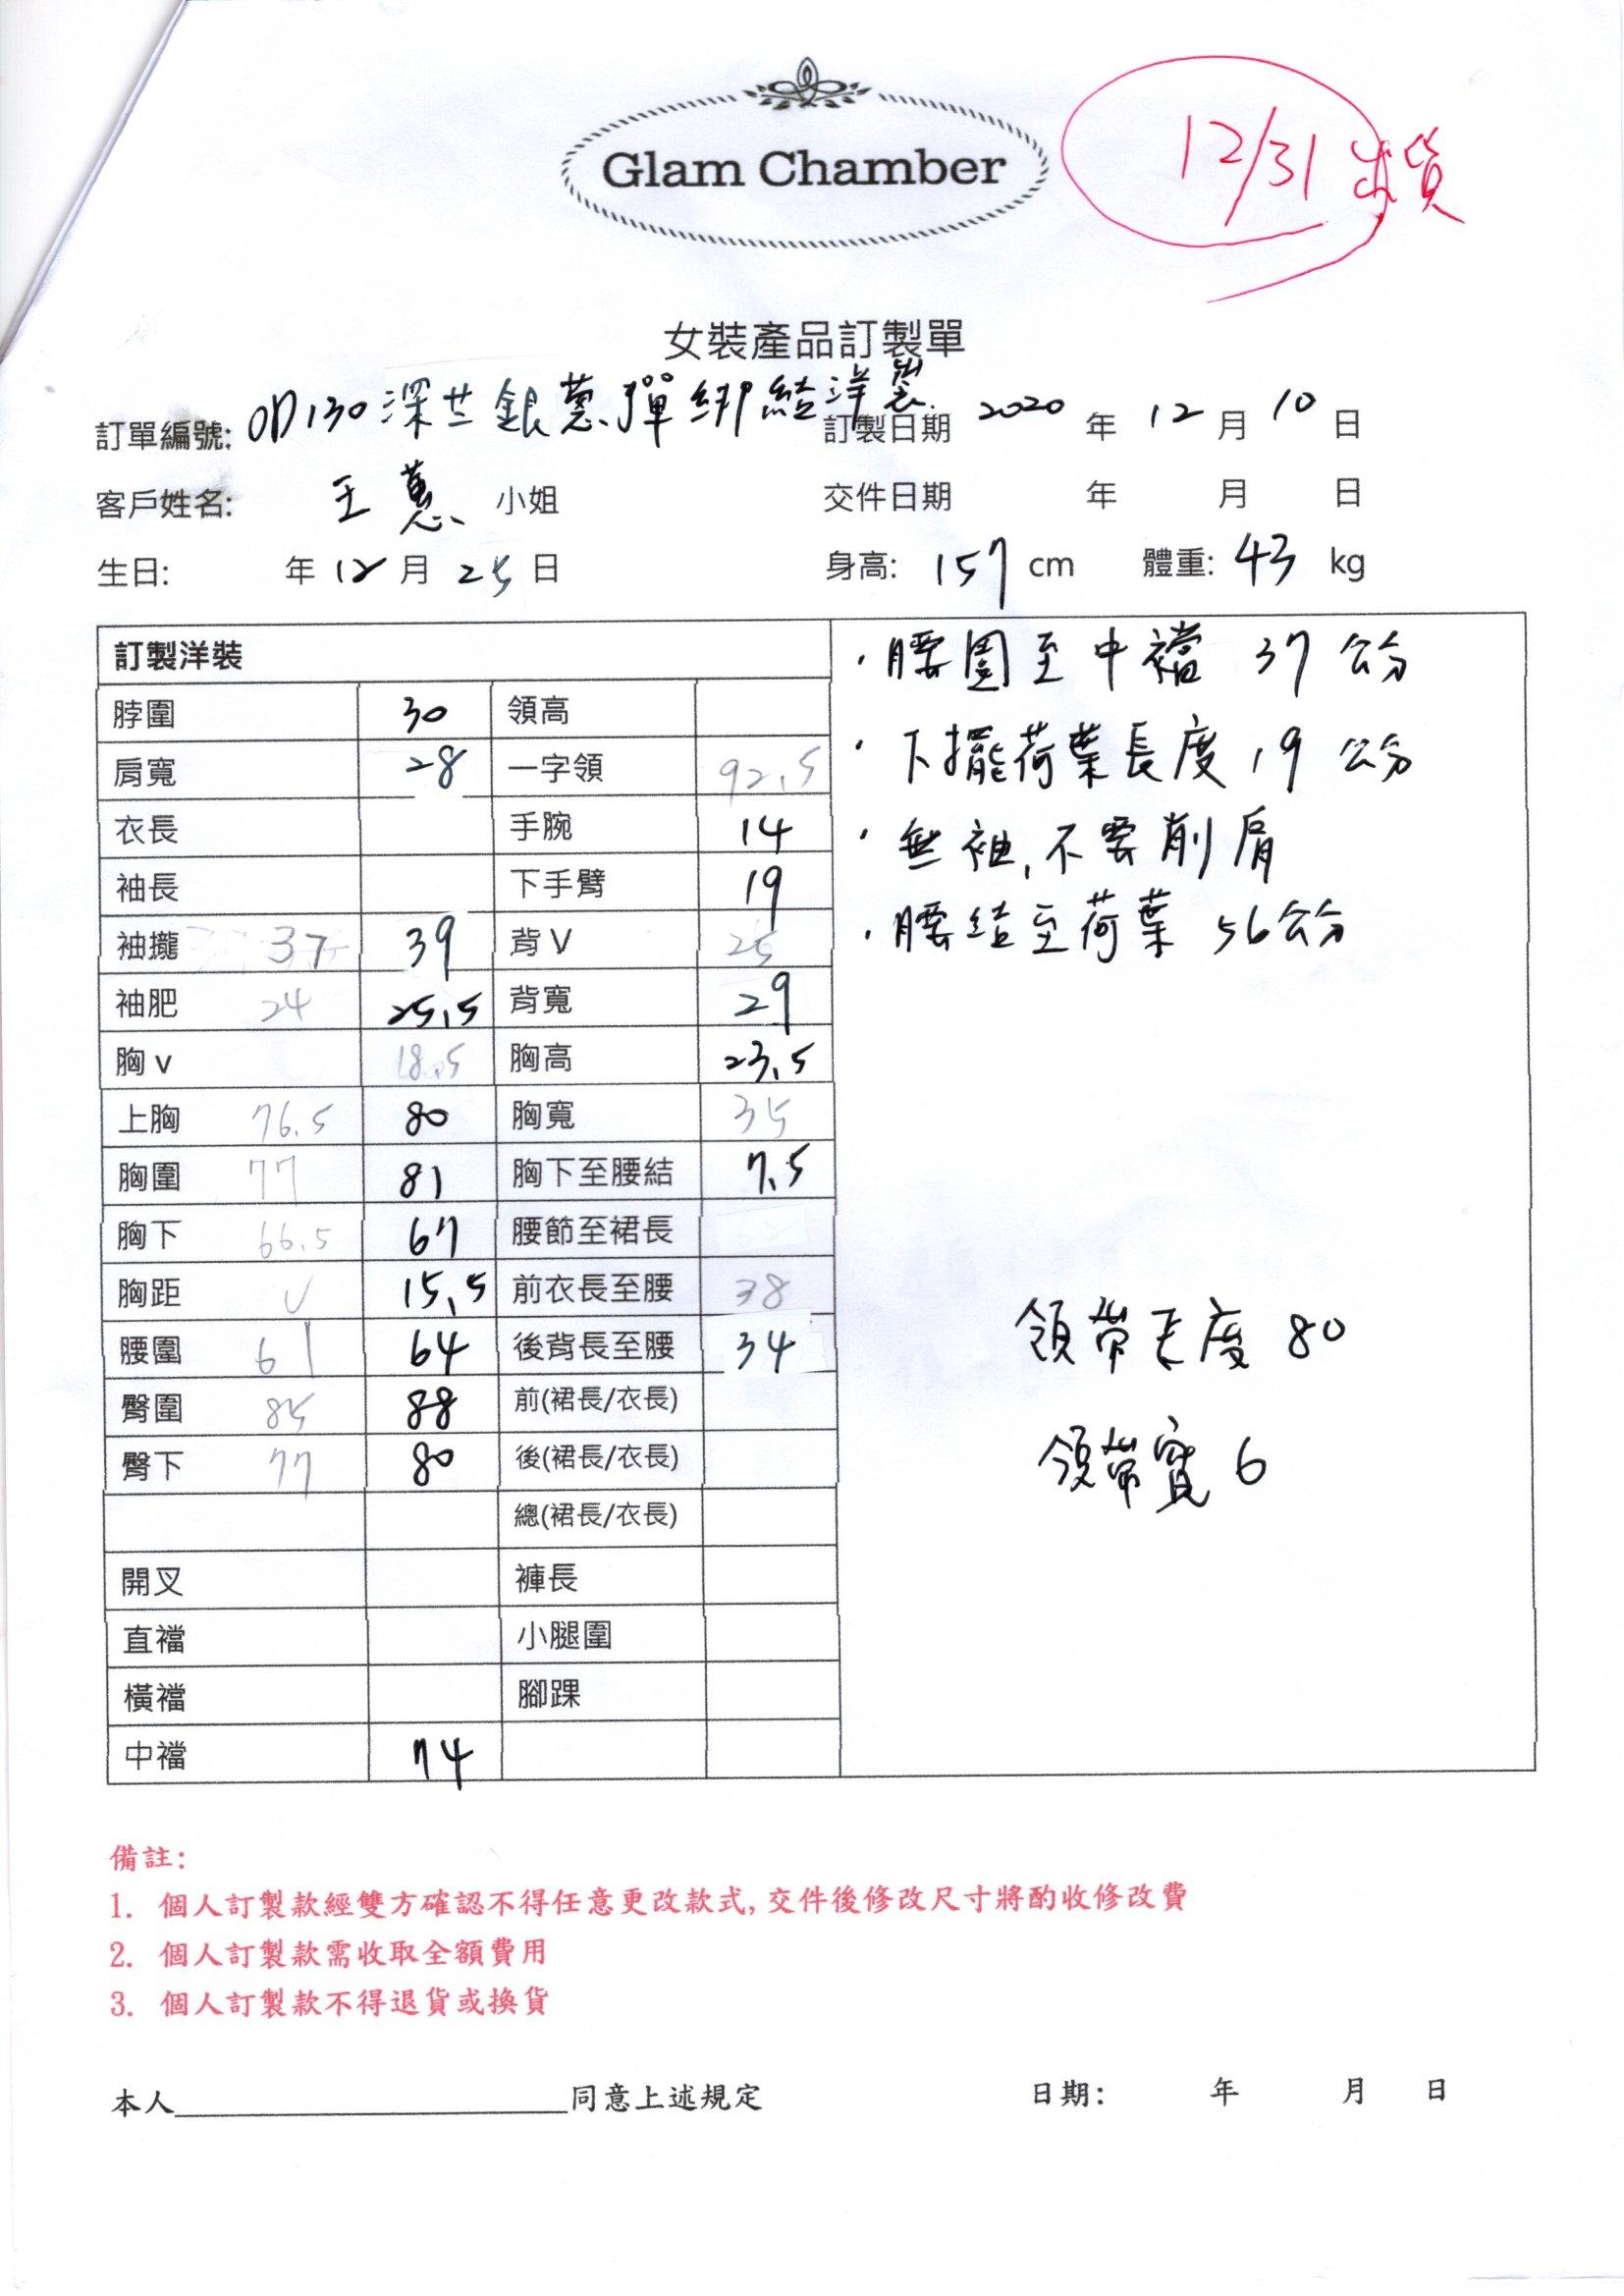 Glam Chamber
12/31 出貨
女裝產品訂製單
訂單編號: OD130 深芷銀蔥彈綁結洋裝 訂製日期 2020 年 12 月 10 日
客戶姓名: 王蕙 小姐 交件日期 年 月 日
生日: 年 12 月 25 日 身高: 157 cm 體重: 43 kg
訂製洋裝
脖圍 30 領高
肩寬 28 一字領 92.5
衣長 手腕 14
袖長 下手臂 19
袖攏 37 39 背V 25
袖肥 24 25.5 背寬 29
胸v 18.5 胸高 23.5
上胸 76.5 80 胸寬 35
胸圍 77 81 胸下至腰結 7.5
胸下 66.5 67 腰節至裙長
胸距 ✓ 15.5 前衣長至腰 38
腰圍 61 64 後背長至腰 34
臀圍 85 88 前(裙長/衣長)
臀下 77 80 後(裙長/衣長)
總(裙長/衣長)
開叉 褲長
直襠 小腿圍
橫襠 腳踝
中襠 74
・腰圍至中襠 37 公分
・下擺荷葉長度 19 公分
・無袖,不要削肩
・腰結至荷葉 56公分
領帶長度 80
領帶寬 6
備註:
1. 個人訂製款經雙方確認不得任意更改款式,交件後修改尺寸將酌收修改費
2. 個人訂製款需收取全額費用
3. 個人訂製款不得退貨或換貨
本人 同意上述規定 日期: 年 月 日